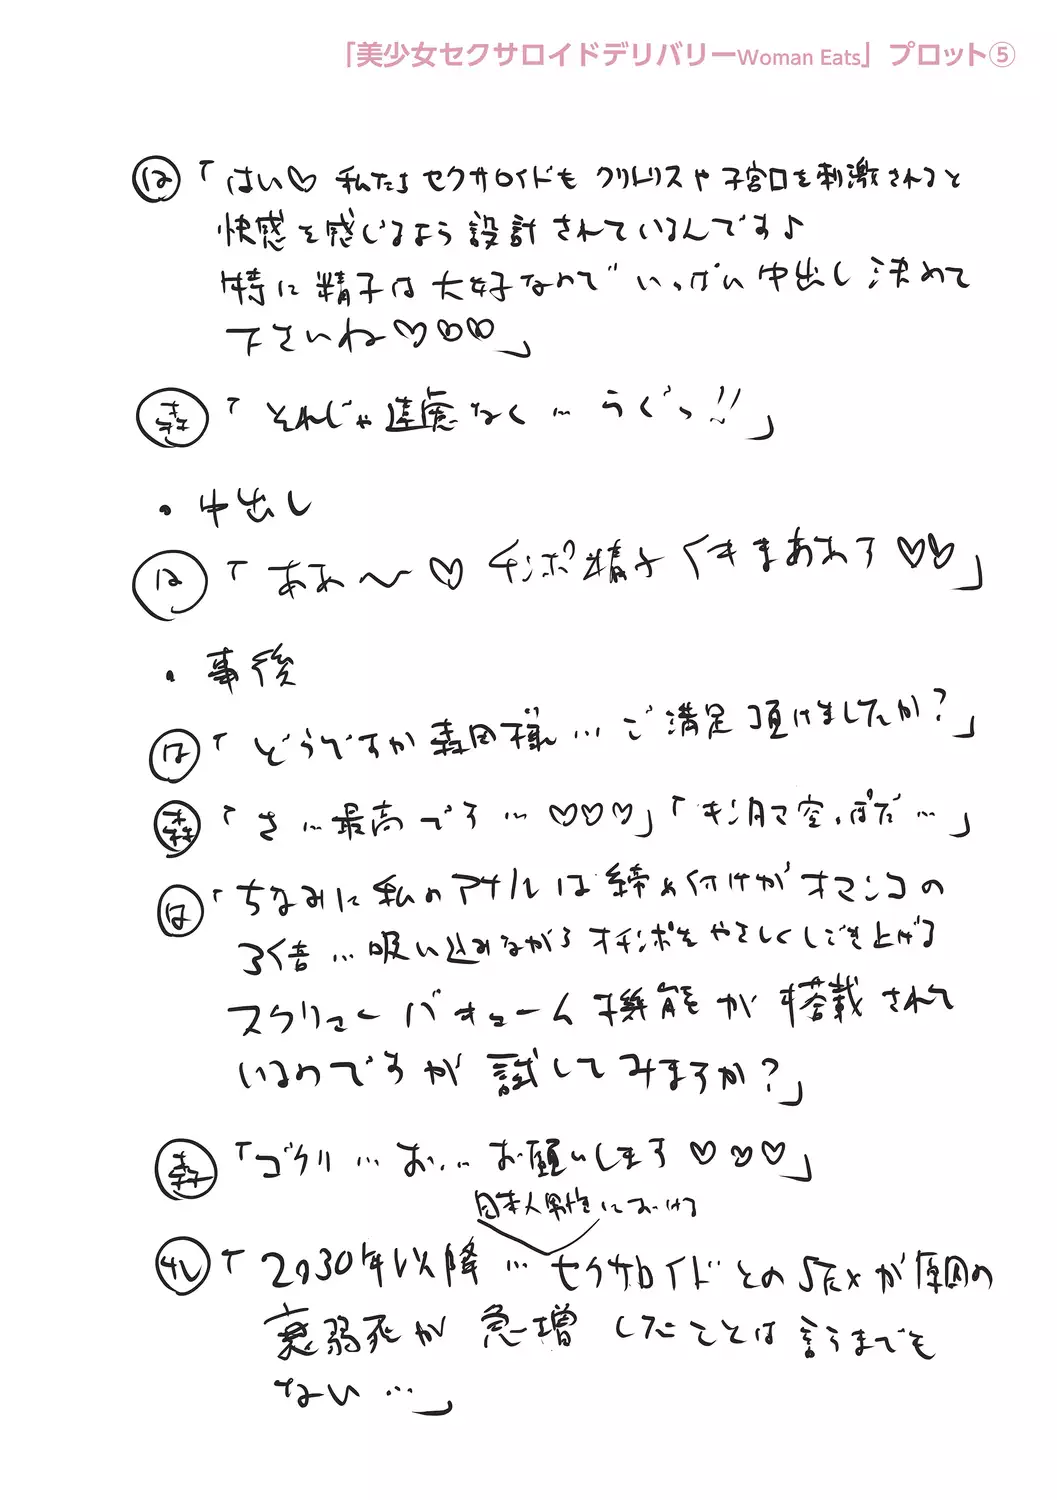 「美少女セクサロイドデリバリーWoman Eats」プロット⑤
は「はい♡ 私たちセクサロイドもクリトリスや子宮口を刺激されると
快感を感じるよう設計されているんです♪
特に精子は大好なのでいっぱい中出し決めて
下さいね♡♡♡」
森「それじゃ遠慮なく…うぐっ!!」
・中出し
は「ああ〜♡ チンポ精子くきまあわす♡♡」
・事後
は「どうですか森田様…ご満足頂けましたか?」
森「さ…最高です…♡♡♡」「キンタマ空っぽだ…」
は「ちなみに私のアナルは締め付けがオマンコの
3倍…吸い込みながらオチンポをやさしくしごき上げる
スクリューバキューム機能が搭載されて
いるのですが試してみますか?」
森「ゴクリ…お…お願いします♡♡♡」
日本人男性における
ナレ「2030年以降…セクサロイドとのSEXが原因の
衰弱死が急増したことは言うまでも
ない…」